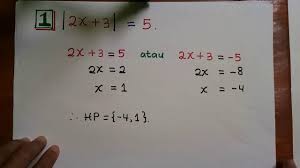 1 |2x+3| = 5.
2x+3 = 5 atau 2x+3 = -5
2x = 2 2x = -8
x = 1 x = -4
∴ HP = {-4, 1}.